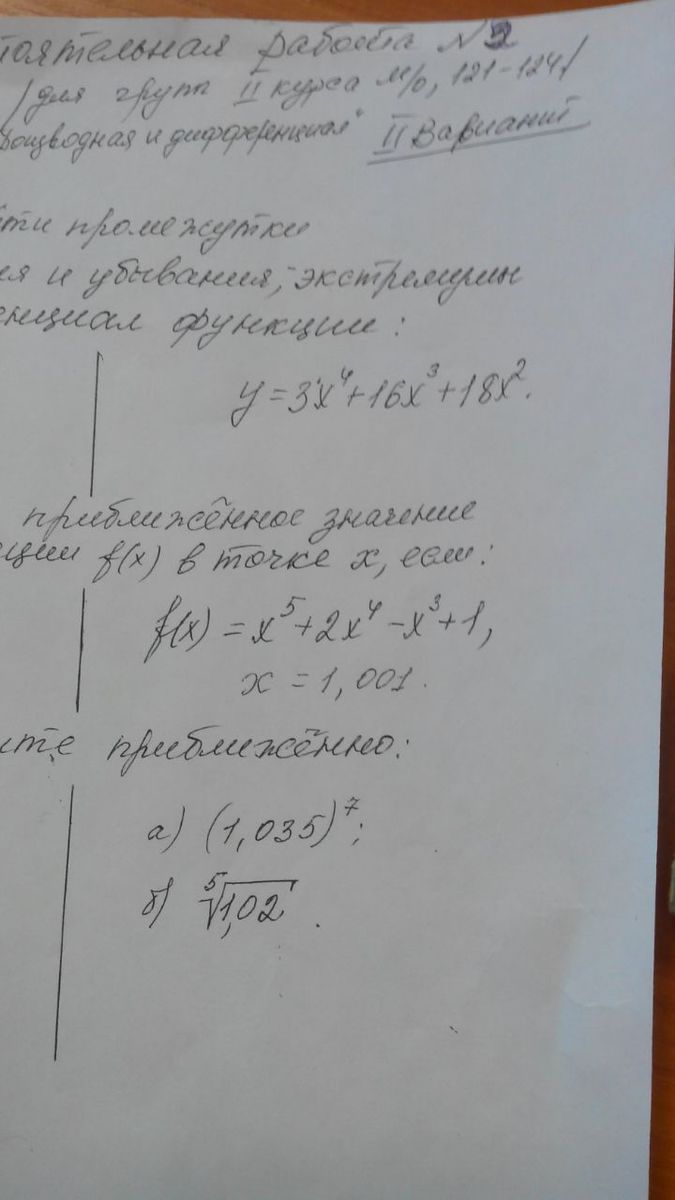 тоятельная работа №2
/для групп II курса м/о, 121-124/
роизводная и дифференциал" II Вариант
йти промежутки
ия и убывания, экстремумы
енциал функции:
y=3x⁴+16x³+18x².
приближённое значение
кции f(x) в точке x, если:
f(x) = x⁵+2x⁴-x³+1,
x = 1,001.
ите приближённо:
а) (1,035)⁷;
б) ⁵√1,02.